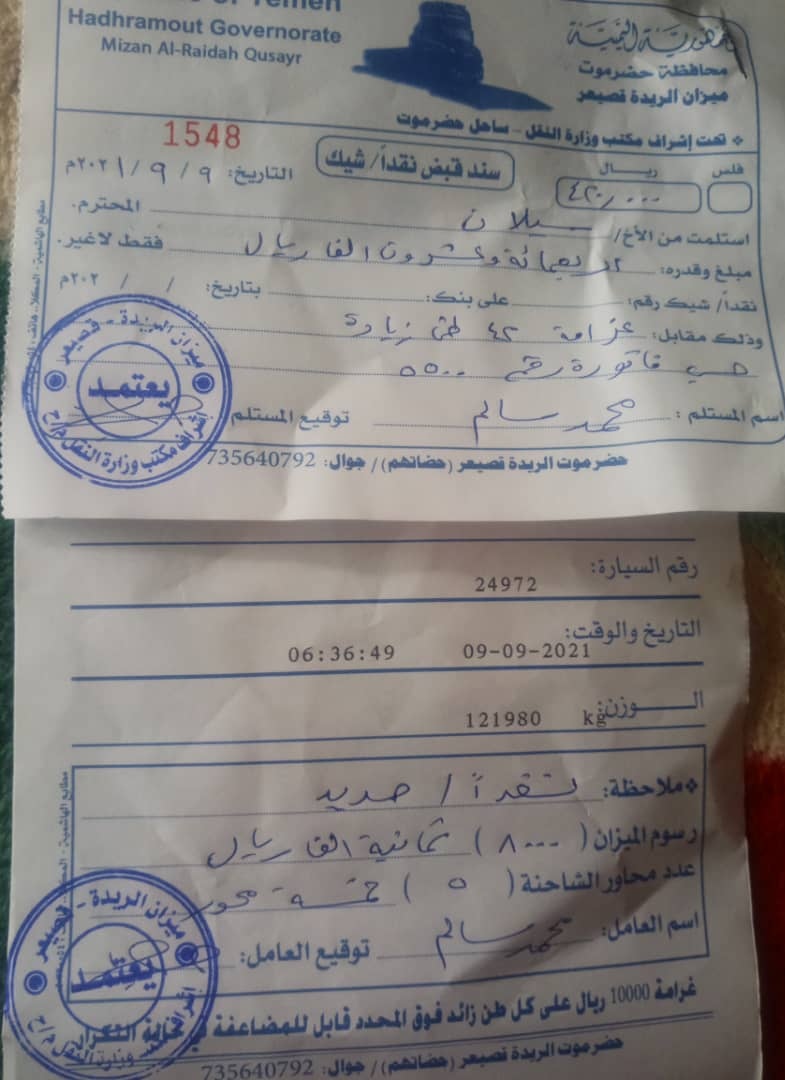 of Yemen
Hadhramout Governorate
Mizan Al-Raidah Qusayr
جمهورية اليمنية
محافظة حضرموت
ميزان الريدة قصيعر
❖ تحت إشراف مكتب وزارة النقل - ساحل حضرموت
1548
سند قبض نقداً/ شيك
فلس ريـــال
٤٢٠,٠٠٠
التاريخ: ٩ / ٩ / ٢٠٢١م
استلمت من الأخ/ سيلان المحترم.
مبلغ وقدره: اربعمائة وعشرون الف ريال فقط لاغير.
نقداً/ شيك رقم: على بنك: بتاريخ: / / ٢٠٢م
وذلك مقابل: غرامة ٤٢ طن زيادة
حسب فاتورة رقم ٥٥٠٠
اسم المستلم : محمد سالم توقيع المستلم
حضرموت الريدة قصيعر (حضاتهم)/ جوال: 735640792
ميزان الريدة - قصيعر
يعتمد
إشراف مكتب وزارة النقل م/ح
رقم السيارة: 24972
التاريخ والوقت: 09-09-2021 06:36:49
الـــــوزن: 121980 kg
❖ملاحظة: نقداً / حديد
رسوم الميزان ( ٨٠٠٠ ) ثمانية الف ريال
عدد محاور الشاحنة ( ٥ ) خمسة محور
اسم العامل: محمد سالم توقيع العامل:
غرامة 10000 ريال على كل طن زائد فوق المحدد قابل للمضاعفة في حالة التكرار
حضرموت الريدة قصيعر (حضاتهم)/ جوال: 735640792
ميزان الريدة - قصيعر
يعتمد
إشراف مكتب وزارة النقل م/ح